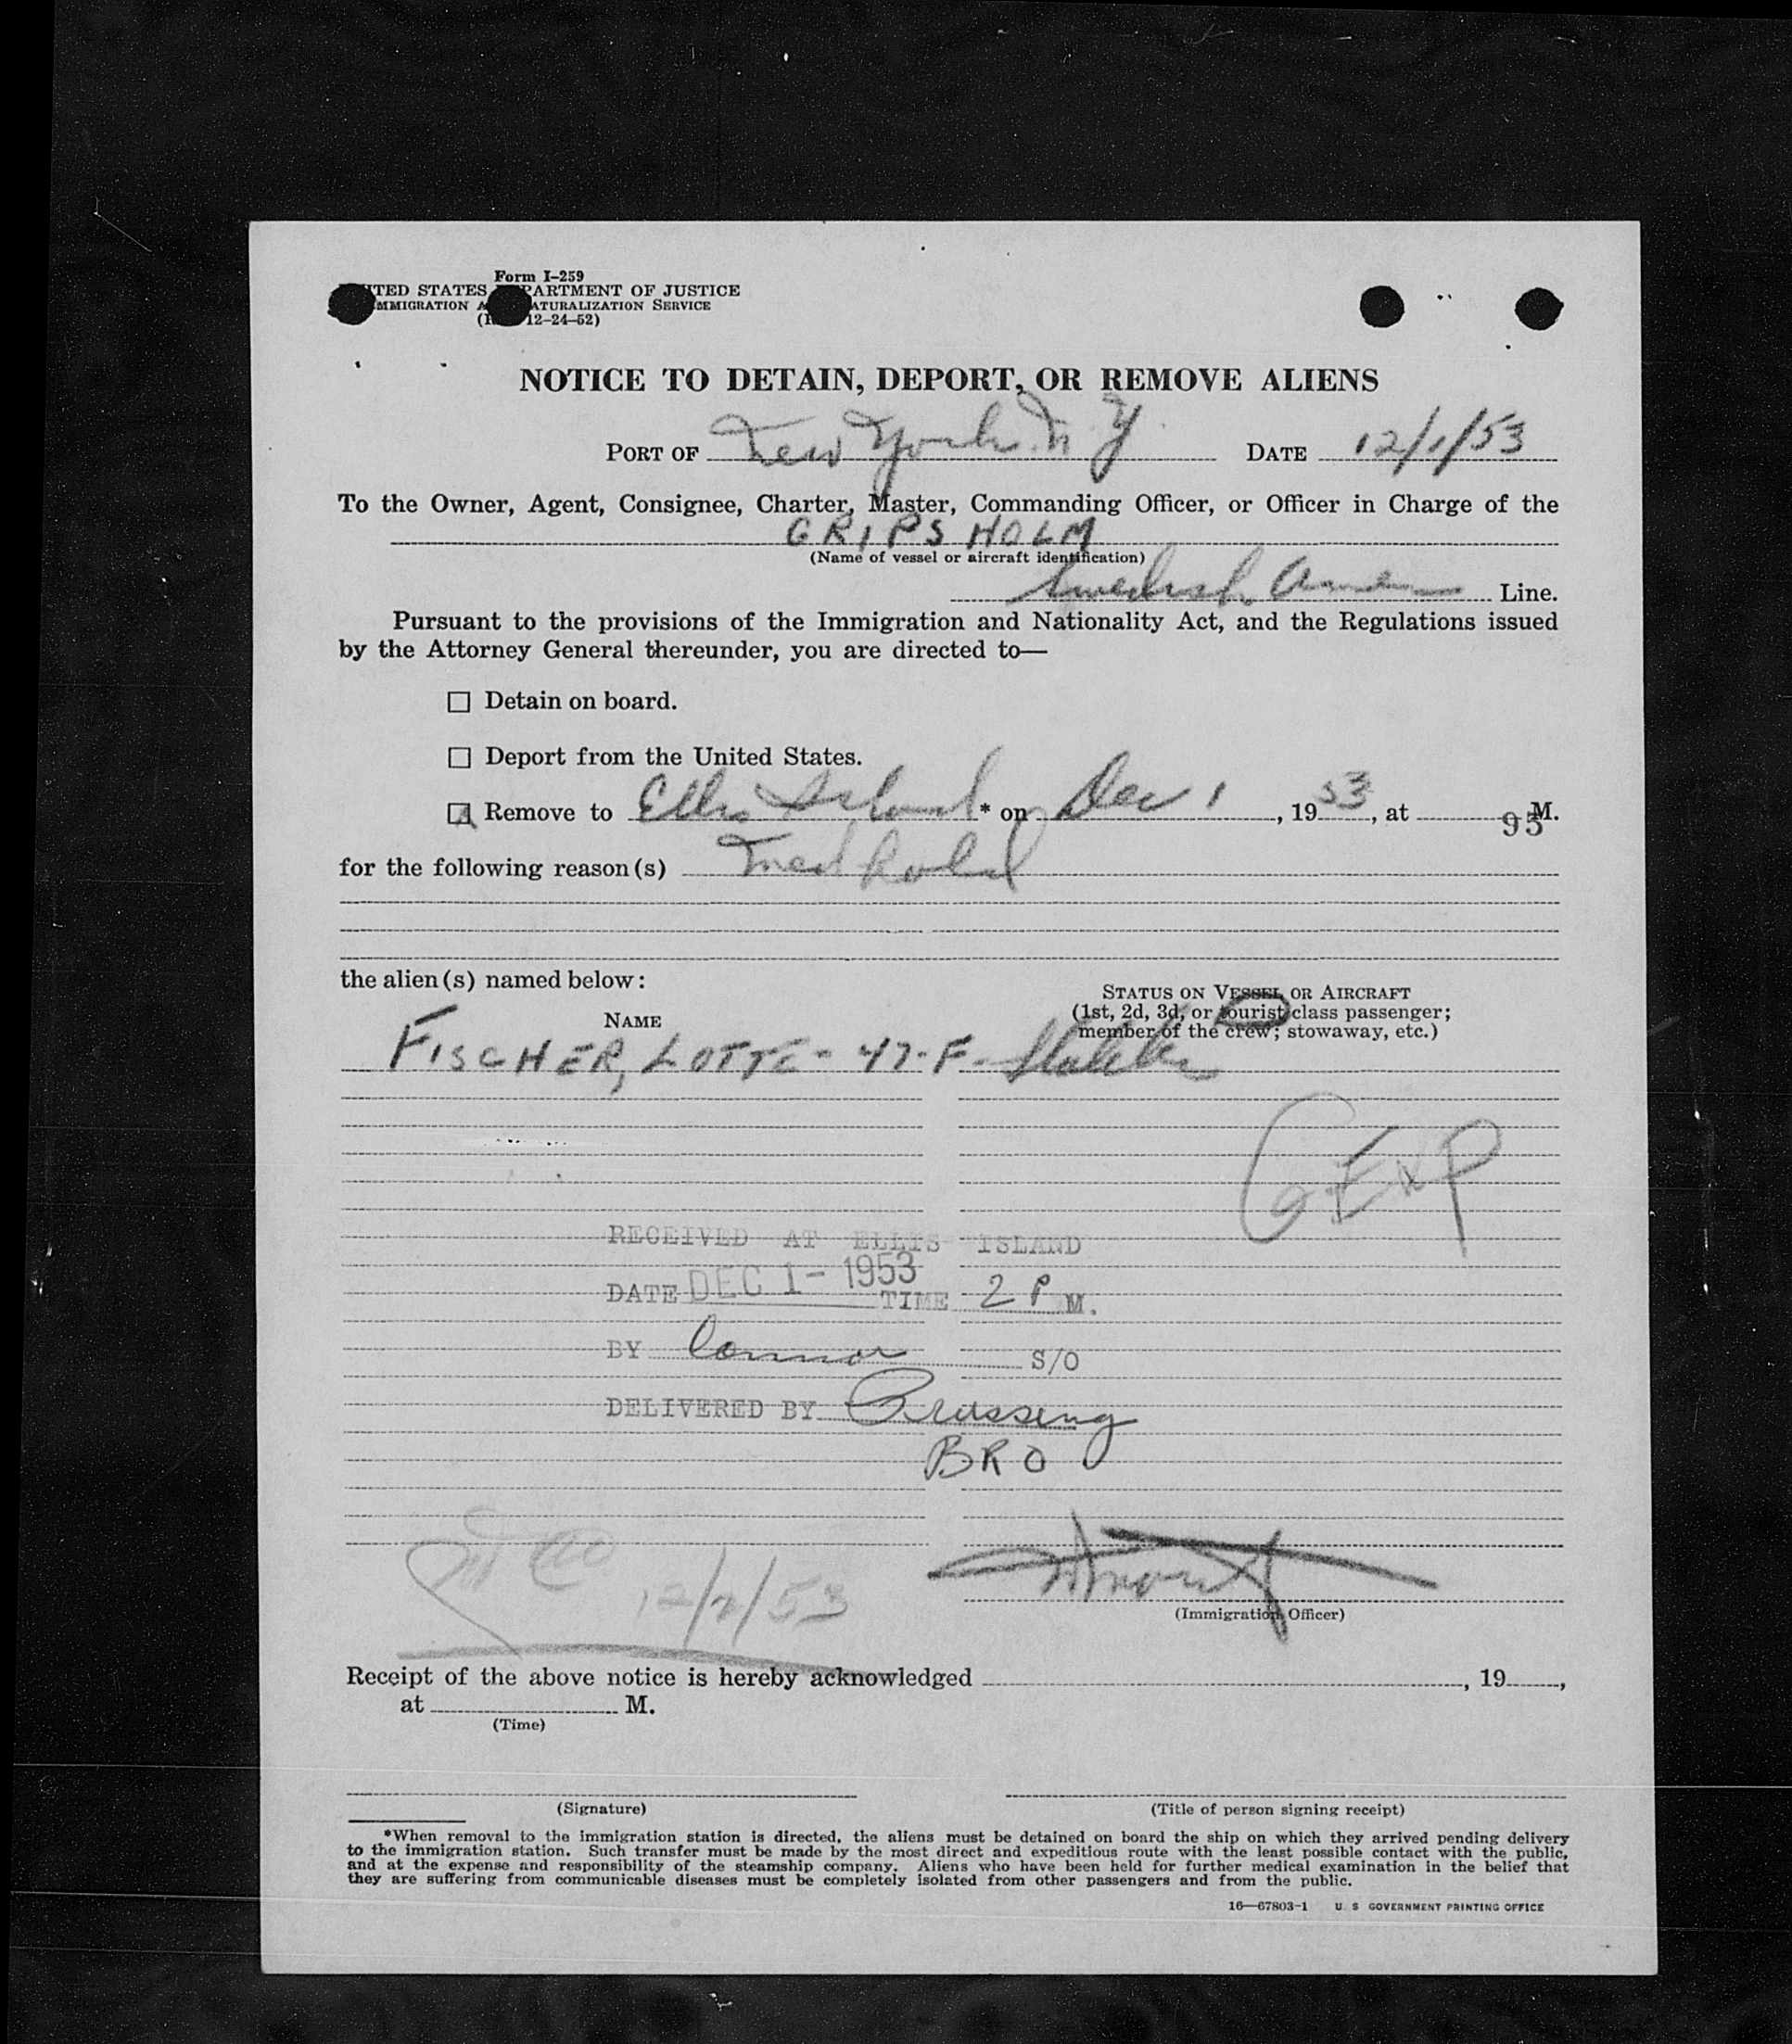 Form I-259
TED STATES PARTMENT OF JUSTICE
MMIGRATION A ATURALIZATION SERVICE
12-24-52)
NOTICE TO DETAIN, DEPORT, OR REMOVE ALIENS
PORT OF New York N.Y. DATE 12/1/53
To the Owner, Agent, Consignee, Charter, Master, Commanding Officer, or Officer in Charge of the
GRIPSHOLM
(Name of vessel or aircraft identification)
Swedish Amer Line.
Pursuant to the provisions of the Immigration and Nationality Act, and the Regulations issued
by the Attorney General thereunder, you are directed to—
Detain on board.
Deport from the United States.
Remove to Ellis Island * on Dec 1, 1953, at M.
95
for the following reason(s) Med hold
the alien(s) named below:
STATUS ON VESSEL OR AIRCRAFT
(1st, 2d, 3d, or tourist class passenger;
member of the crew; stowaway, etc.)
NAME
FISCHER, LOTTE - 47-F-
EXP
RECEIVED AT ELLIS ISLAND
DATE DEC 1 - 1953 TIME 2 P M.
BY Connor S/O
DELIVERED BY Prussing
BRO
12/2/53
(Immigration Officer)
Receipt of the above notice is hereby acknowledged , 19 ,
at M.
(Time)
(Signature) (Title of person signing receipt)
*When removal to the immigration station is directed, the aliens must be detained on board the ship on which they arrived pending delivery
to the immigration station. Such transfer must be made by the most direct and expeditious route with the least possible contact with the public,
and at the expense and responsibility of the steamship company. Aliens who have been held for further medical examination in the belief that
they are suffering from communicable diseases must be completely isolated from other passengers and from the public.
16—67803-1 U S GOVERNMENT PRINTING OFFICE